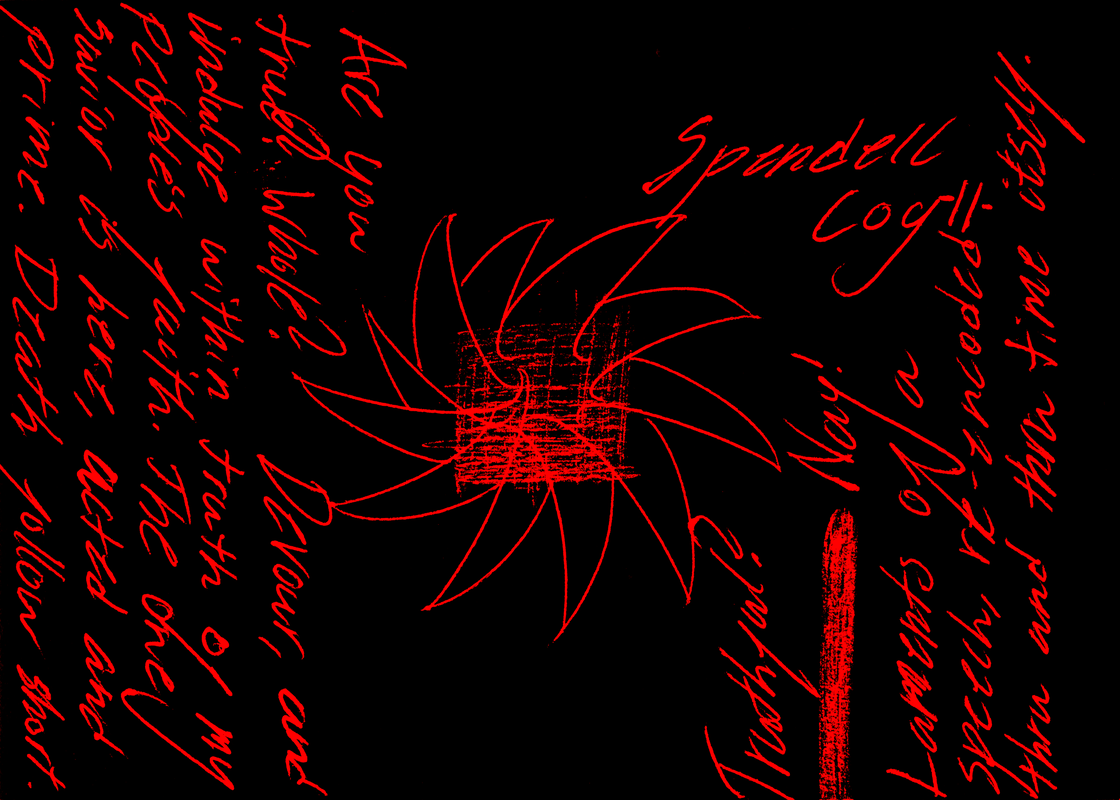 Are you
true? Whole? Devour, and
indulge within truth of my
Peoples faith. The one,
Savior is here, acted and
prime. Death follow short.
Spendell
Cog!!
Truthful?
Nay!
Laments of a
speech, re-encoded
thru and thru time itself.